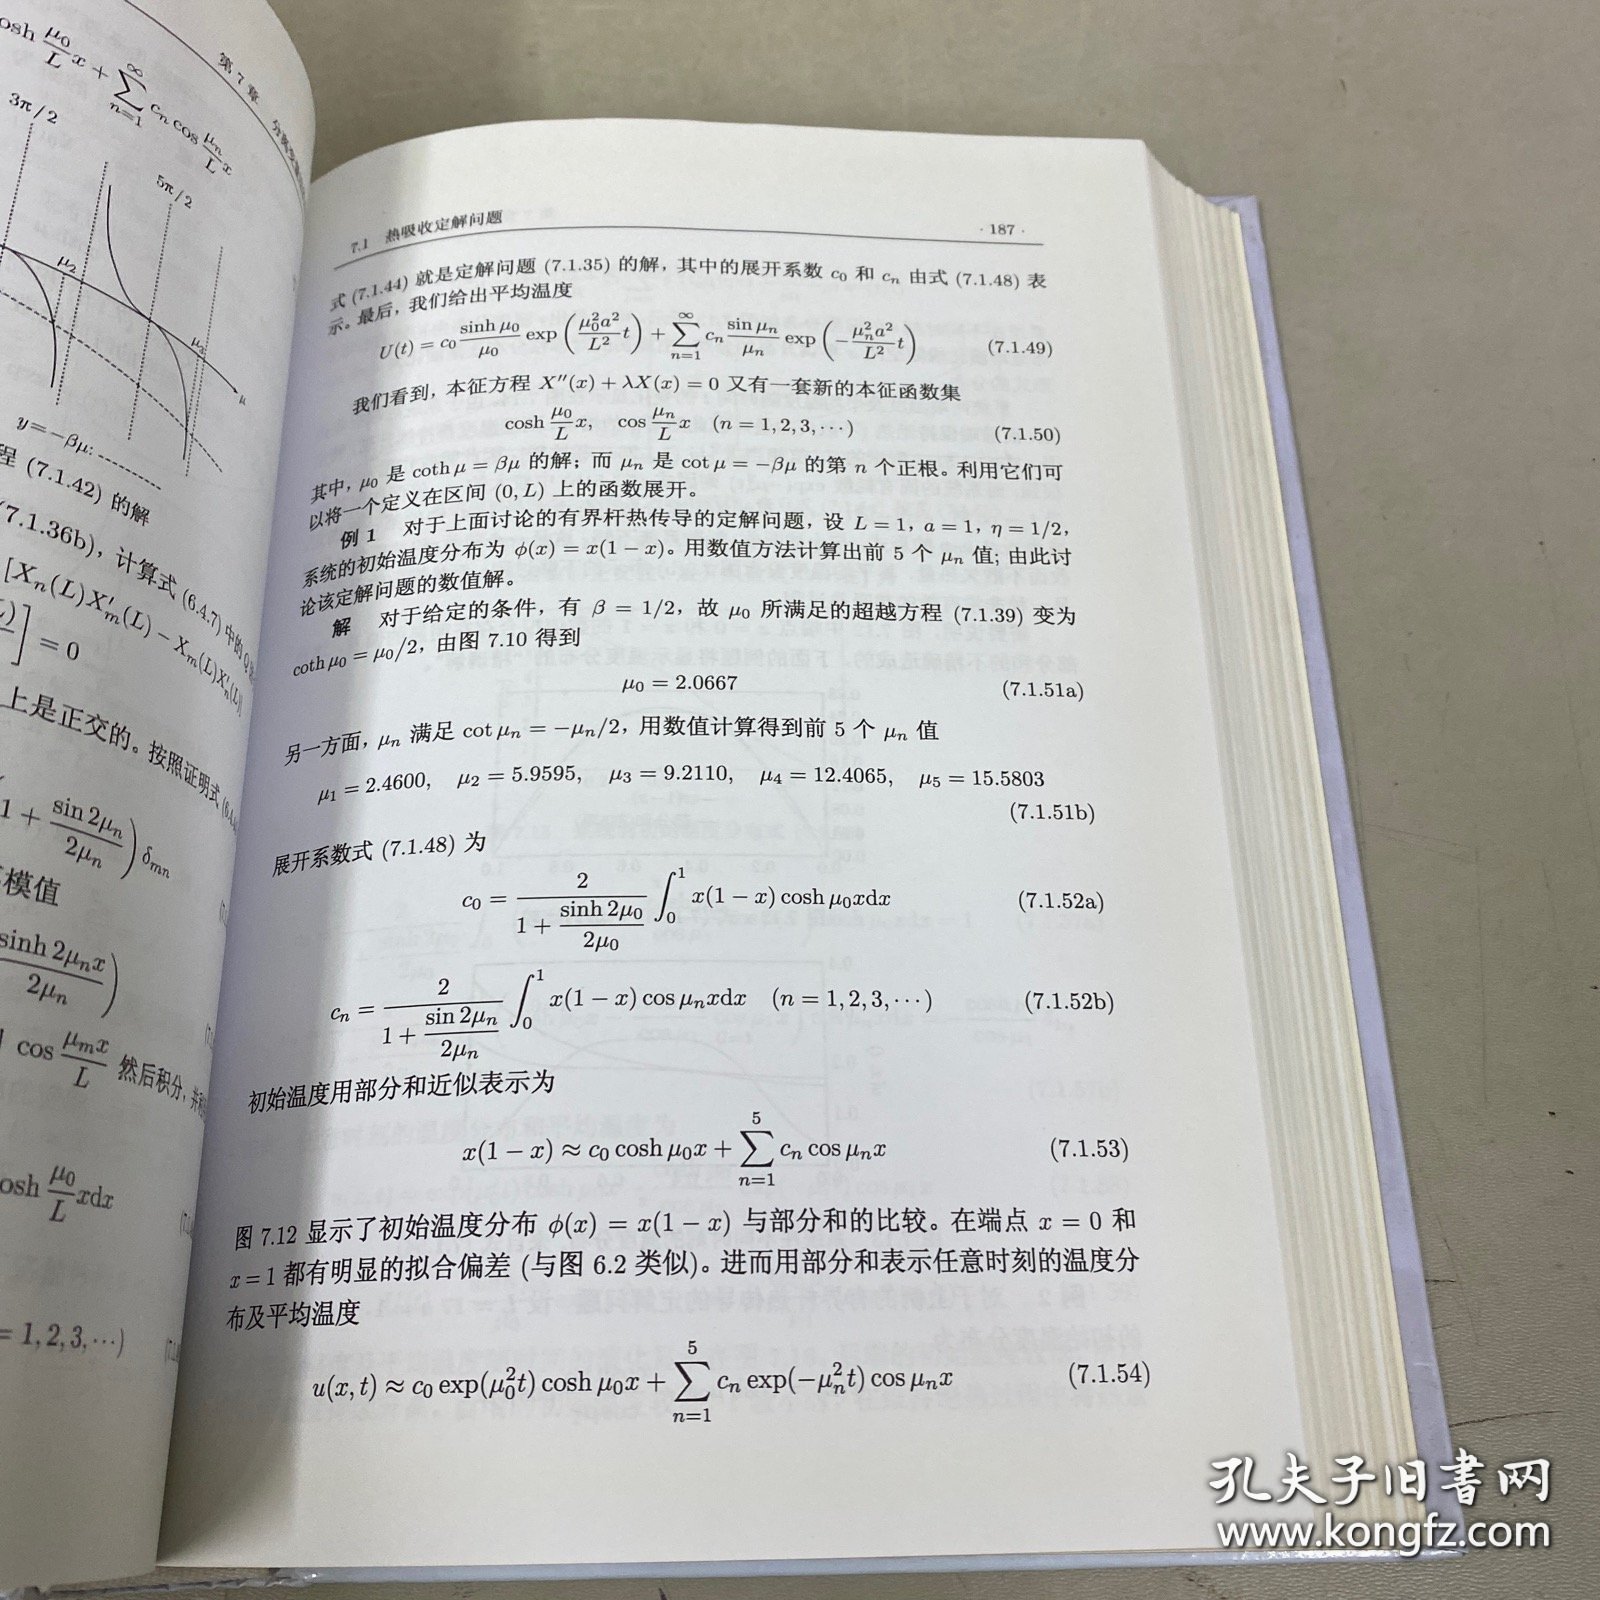 第 7 章
osh μ₀/L x + ∑_{n=1}^{∞} cₙ cos μₙ/L x
3π/2
5π/2
μ₂
μ₃
μ
y=−βμ:
程 (7.1.42) 的解
(7.1.36b), 计算式 (6.4.7) 中的 Q
[Xₙ(L)X′ₘ(L) − Xₘ(L)X′ₙ(L)]
] = 0
上是正交的。按照证明式
1 + sin 2μₙ/2μₙ) δₘₙ
模值
sinh 2μₙx/2μₙ)
cos μₘx/L 然后积分,
osh μ₀/L xdx
= 1, 2, 3, ···)
7.1 热吸收定解问题 · 187 ·
式 (7.1.44) 就是定解问题 (7.1.35) 的解，其中的展开系数 c₀ 和 cₙ 由式 (7.1.48) 表
示。最后，我们给出平均温度
U(t) = c₀ sinh μ₀/μ₀ exp (μ₀²a²/L² t) + ∑_{n=1}^{∞} cₙ sin μₙ/μₙ exp (−μₙ²a²/L² t) (7.1.49)
我们看到，本征方程 X″(x) + λX(x) = 0 又有一套新的本征函数集
cosh μ₀/L x, cos μₙ/L x (n = 1, 2, 3, ···) (7.1.50)
其中，μ₀ 是 coth μ = βμ 的解；而 μₙ 是 cot μ = −βμ 的第 n 个正根。利用它们可
以将一个定义在区间 (0, L) 上的函数展开。
例 1 对于上面讨论的有界杆热传导的定解问题，设 L = 1，a = 1，η = 1/2，
系统的初始温度分布为 ϕ(x) = x(1 − x)。用数值方法计算出前 5 个 μₙ 值；由此讨
论该定解问题的数值解。
解 对于给定的条件，有 β = 1/2，故 μ₀ 所满足的超越方程 (7.1.39) 变为
coth μ₀ = μ₀/2，由图 7.10 得到
μ₀ = 2.0667 (7.1.51a)
另一方面，μₙ 满足 cot μₙ = −μₙ/2，用数值计算得到前 5 个 μₙ 值
μ₁ = 2.4600, μ₂ = 5.9595, μ₃ = 9.2110, μ₄ = 12.4065, μ₅ = 15.5803
(7.1.51b)
展开系数式 (7.1.48) 为
c₀ = 2/(1 + sinh 2μ₀/2μ₀) ∫₀¹ x(1 − x) cosh μ₀xdx (7.1.52a)
cₙ = 2/(1 + sin 2μₙ/2μₙ) ∫₀¹ x(1 − x) cos μₙxdx (n = 1, 2, 3, ···) (7.1.52b)
初始温度用部分和近似表示为
x(1 − x) ≈ c₀ cosh μ₀x + ∑_{n=1}^{5} cₙ cos μₙx (7.1.53)
图 7.12 显示了初始温度分布 ϕ(x) = x(1 − x) 与部分和的比较。在端点 x = 0 和
x = 1 都有明显的拟合偏差 (与图 6.2 类似)。进而用部分和表示任意时刻的温度分
布及平均温度
u(x, t) ≈ c₀ exp(μ₀²t) cosh μ₀x + ∑_{n=1}^{5} cₙ exp(−μₙ²t) cos μₙx (7.1.54)
孔夫子旧书网
www.kongfz.com